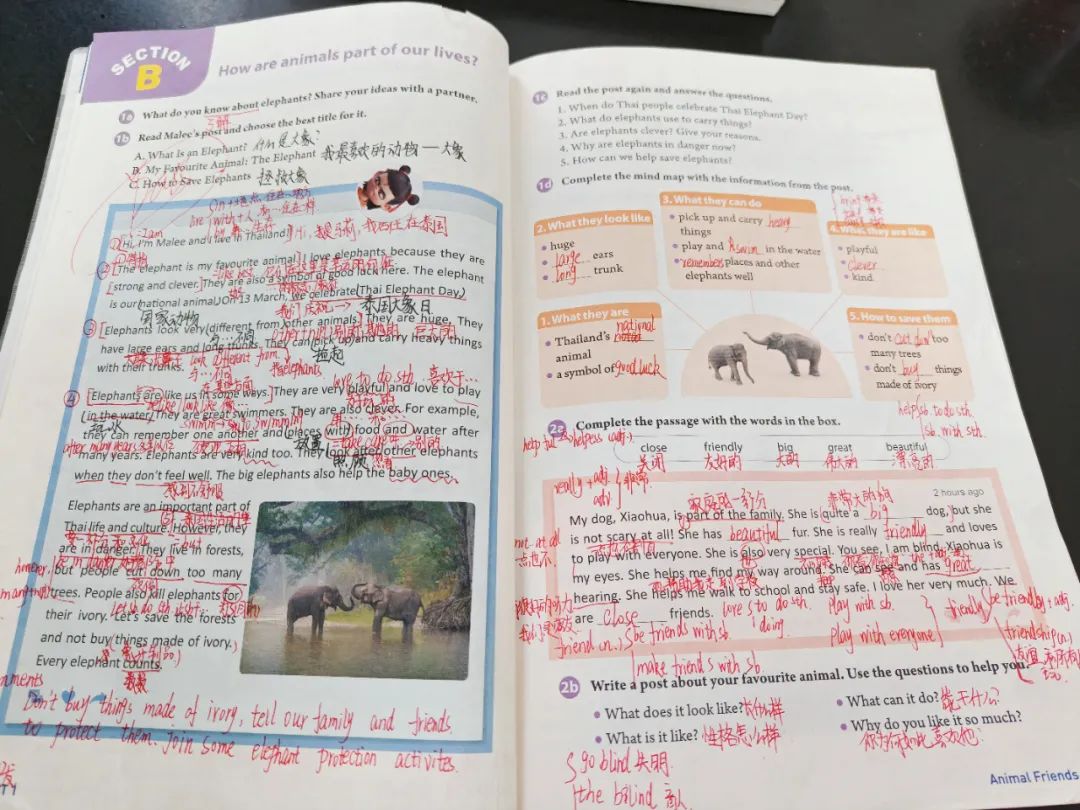 SECTION
B
How are animals part of our lives?
1a What do you know about elephants? Share your ideas with a partner.
了解
1b Read Malee's post and choose the best title for it.
A. What is an Elephant? 什么是大象?
B. My Favourite Animal: The Elephant 我最喜欢的动物—大象
C. How to Save Elephants 拯救大象
Hi, I'm Malee and I live in Thailand! Hi, 我是马莉, 我居住在泰国
The elephant is my favourite animal. I love elephants because they are
strong and clever. They are also a symbol of good luck here. The elephant
is our national animal. On 13 March, we celebrate Thai Elephant Day.
国家动物 我们庆祝 泰国大象日
Elephants look very different from other animals. They are huge. They
have large ears and long trunks. They can pick up and carry heavy things
with their trunks. look different from 指elephants 拖起
love to do sth. 喜欢于…
Elephants are like us in some ways. They are very playful and love to play
in the water. They are great swimmers. They are also clever. For example,
玩水
they can remember one another and places with food and water after
many years. Elephants are very kind too. They look after other elephants
照顾
when they don't feel well. The big elephants also help the baby ones.
Elephants are an important part of
Thai life and culture. However, they
are in danger. They live in forests,
but people cut down too many
trees. People also kill elephants for
their ivory. Let's save the forests
and not buy things made of ivory.
Every elephant counts.
Don't buy things made of ivory, tell our family and friends
to protect them. Join some elephant protection activites.
1c Read the post again and answer the questions.
1. When do Thai people celebrate Thai Elephant Day?
2. What do elephants use to carry things?
3. Are elephants clever? Give your reasons.
4. Why are elephants in danger now?
5. How can we help save elephants?
1d Complete the mind map with the information from the post.
2. What they look like
huge
large ears
long trunk
3. What they can do
pick up and carry heavy
things
play and swim in the water
remembers places and other
elephants well
4. What they are like
playful
clever
kind
1. What they are
Thailand's national
animal
a symbol of good luck
5. How to save them
don't cut down too
many trees
don't buy things
made of ivory
help sb. to do sth.
sb. with sth.
2a Complete the passage with the words in the box.
close friendly big great beautiful
关闭 友好的 大的 伟大的 漂亮的
really + adj.
adv.
家庭的一部分 非常大的狗
2 hours ago
My dog, Xiaohua, is part of the family. She is quite a big dog, but she
not at all
一点也不
is not scary at all! She has beautiful fur. She is really friendly and loves
to play with everyone. She is also very special. You see, I am blind. Xiaohua is
my eyes. She helps me find my way around. She can see and has great
hearing. She helps me walk to school and stay safe. I love her very much. We
are close friends. love to do sth. play with sb.
doing.
friend (n.) be friends with sb. play with everyone
make friends with sb.
friendly be friendly + adj.
friendship (n.)
友谊
2b Write a post about your favourite animal. Use the questions to help you.
What does it look like? 长什么样
What can it do? 能干什么?
What is it like? 性格怎么样
Why do you like it so much?
你为何如此喜欢他?
go blind 失明
the blind 盲人
Animal Friends